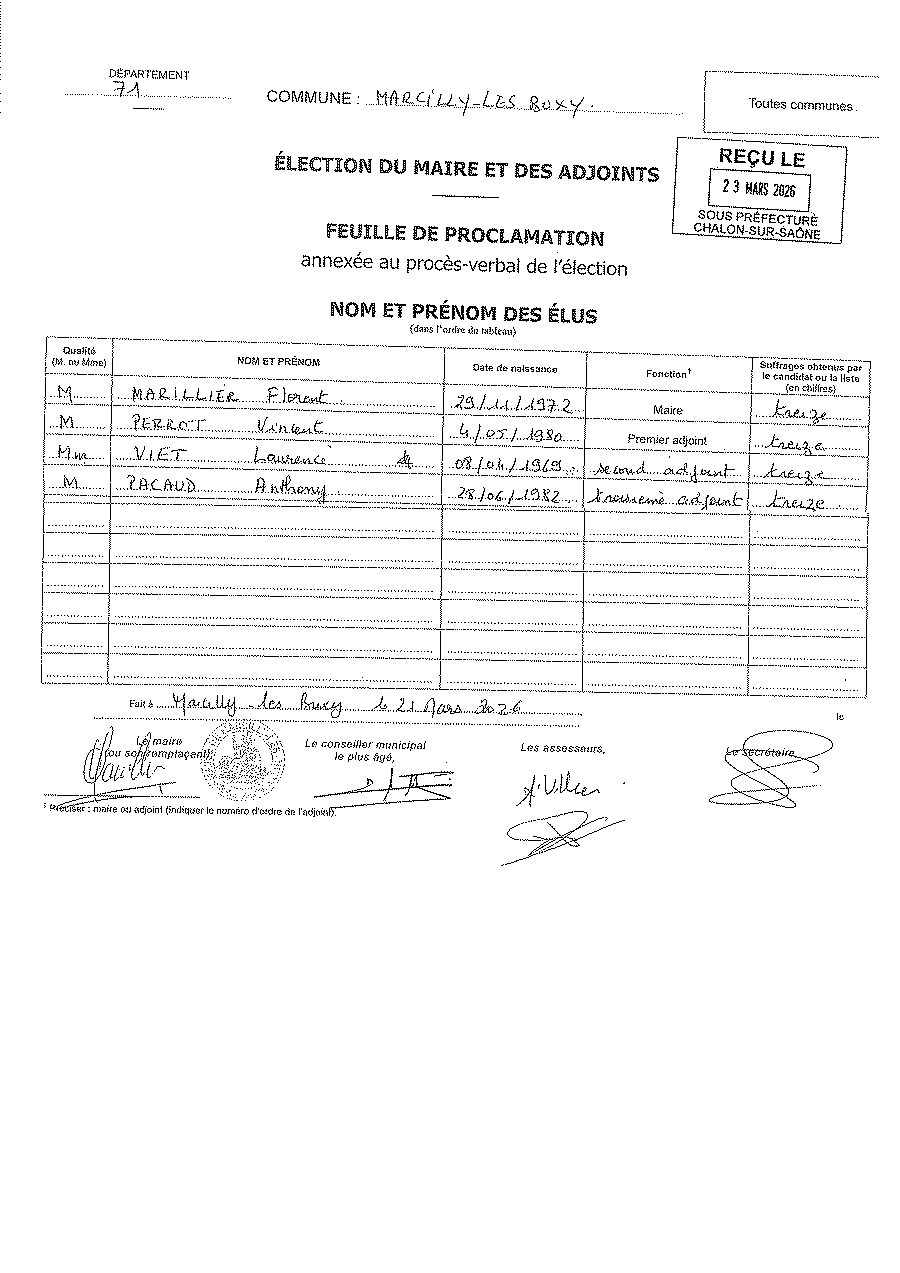 DÉPARTEMENT
71
COMMUNE : MARCILLY-LES BUXY.
Toutes communes
REÇU LE
23 MARS 2026
SOUS PRÉFECTURE
CHALON-SUR-SAÔNE
ÉLECTION DU MAIRE ET DES ADJOINTS
FEUILLE DE PROCLAMATION
annexée au procès-verbal de l'élection
NOM ET PRÉNOM DES ÉLUS
(dans l'ordre du tableau)
Qualité (M. ou Mme) NOM ET PRÉNOM Date de naissance Fonction¹ Suffrages obtenus par le candidat ou la liste (en chiffres)
M MARILLIER Florent 29/11/1972 Maire treize
M PERROT Vincent 4/05/1980 Premier adjoint treize
Mme VIET Laurence 08/04/1969 second adjoint treize
M PACAUD Anthony 28/06/1982 troisième adjoint treize
Fait à Marcilly-les Buxy le 21 Mars 2026
le
Le maire
(ou son remplaçant),
Le conseiller municipal
le plus âgé,
Les assesseurs,
Le secrétaire
A. Villien
¹ Préciser : maire ou adjoint (indiquer le numéro d'ordre de l'adjoint).